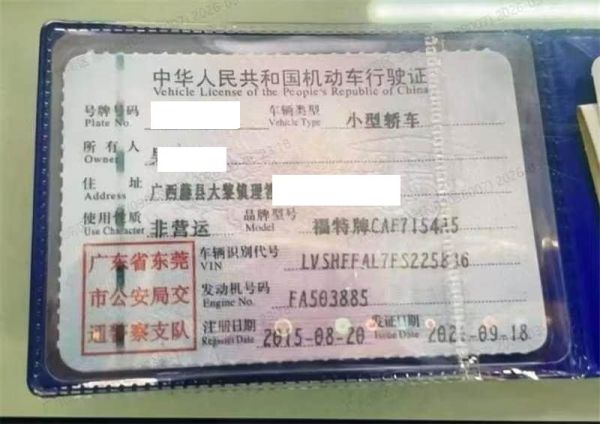 中华人民共和国机动车行驶证
Vehicle License of the People's Republic of China
号牌号码 车辆类型 小型轿车
Plate No. Vehicle Type
所有人
Owner
住址 广西藤县大黎镇理
Address
使用性质 非营运 品牌型号 福特牌CAF7154
Use Character Model
广东省东莞 车辆识别代号 LVSHFFAL7FS225836
市公安局交 VIN
通警察支队 发动机号码 FA503885
Engine No.
注册日期 2015-08-20 发证日期 2021-09-18
Register Date Issue Date